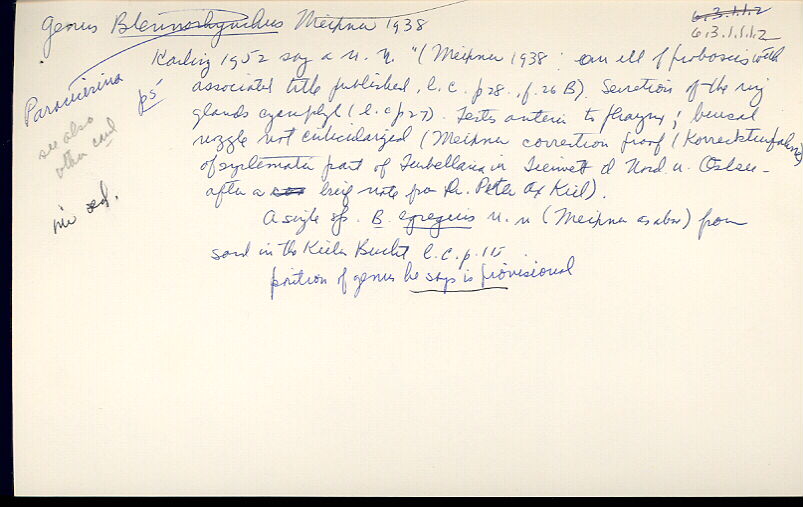 Genus Blennorhynchus Meixner 1938
6.3.1.1.2
6.3.1.1.1.2
Karling 1952 say a n. n. "(Meixner 1938: an ill of proboscis with
Paracicerina
p5
associated title published, l.c. p28, f. 26 B). Secretion of the ring
glands cyanophyl (l.c p27). Testes anterior to pharynx; bursal
see also
other card
nozzle not cuticularized (Meixner correction proof (Korrekturfahne)
of systematic part of Turbellaria in Tierwelt d Nord u. Ostsee -
after a brief note from Dr. Peter Ax Kiel).
A single sp. B. egregius n. n (Meixner as above) from
sand in the Kieler Bucht l.c. p. 115
position of genus he says is provisional